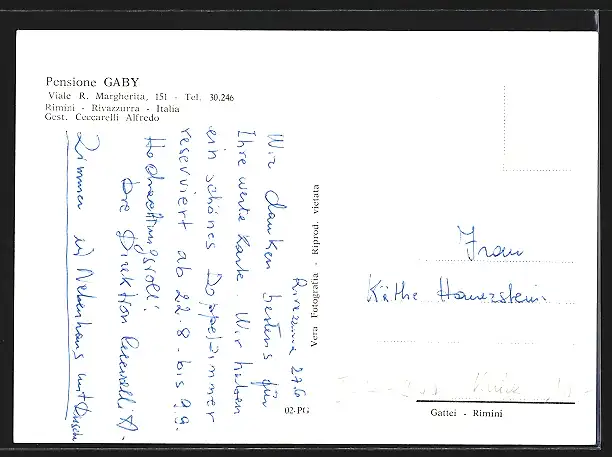 Pensione GABY
Viale R. Margherita, 151 - Tel. 30.246
Rimini - Rivazzurra - Italia
Gest. Ceccarelli Alfredo
Rivazzurra 27.6
Wir danken bestens für
Ihre werte Karte. Wir haben
ein schönes Doppelzimmer
reserviert ab 22.8. bis 9.9.
Hochachtungsvoll!
Die Direktion Ceccarelli A.
Zimmer in Nebenhaus mit Dusche
Vera Fotografia - Riprod. vietata
02-PG
Frau
Käthe
Gattei - Rimini